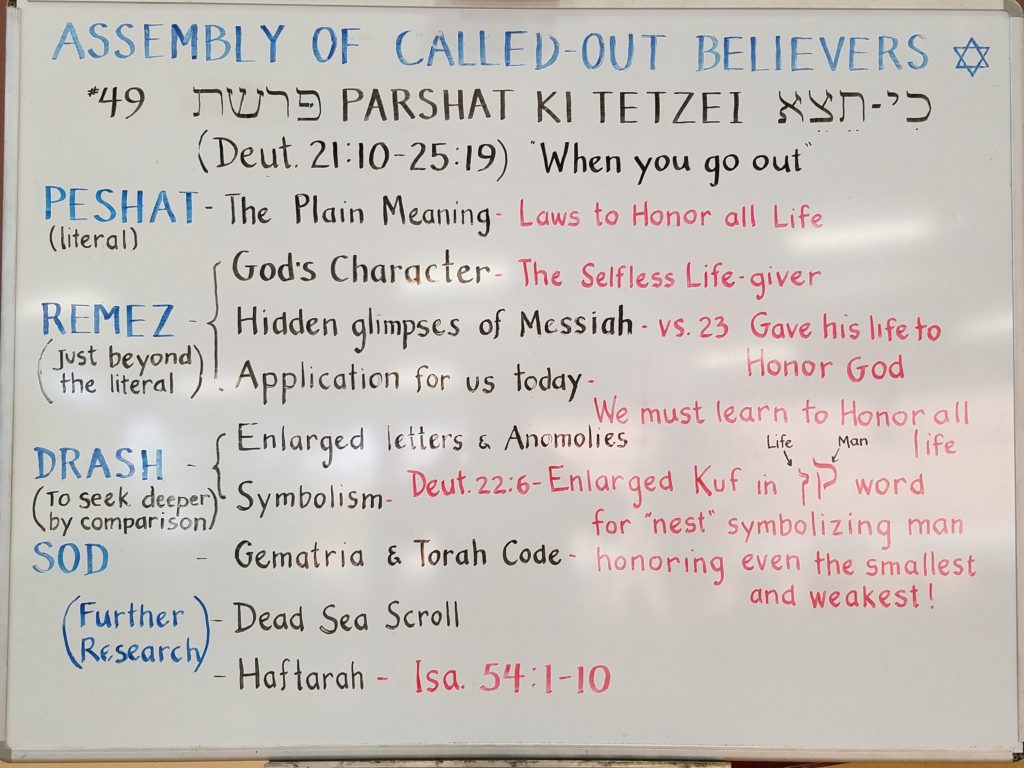 ASSEMBLY OF CALLED-OUT BELIEVERS
#49 פרשת PARSHAT KI TETZEI כִּי-תֵצֵא
(Deut. 21:10-25:19) "When you go out"
PESHAT - The Plain Meaning - Laws to Honor all Life
(literal)
God's Character - The Selfless Life-giver
REMEZ - Hidden glimpses of Messiah - vs. 23 Gave his life to
Honor God
(Just beyond
the literal)
Application for us today -
We must learn to Honor all
life
DRASH - Enlarged letters & Anomolies
Life Man
(To seek deeper
by comparison)
Symbolism - Deut. 22:6 - Enlarged Kuf in קן word
for "nest" symbolizing man
SOD - Gematria & Torah Code - honoring even the smallest
and weakest!
(Further
Research)
- Dead Sea Scroll
- Haftarah - Isa. 54:1-10